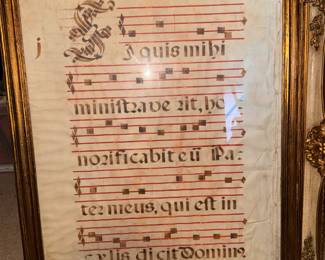 j
Si quis mihi
ministrave rit, ho-
norificabit eū Pa-
ter meus, qui est in
cælis, dicit Domin